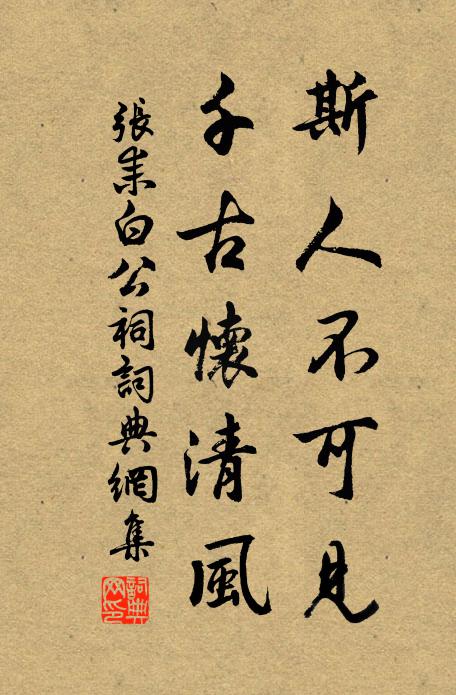 斯人不可見
千古懷清風
張耒白公祠詞典網集
詞典网印